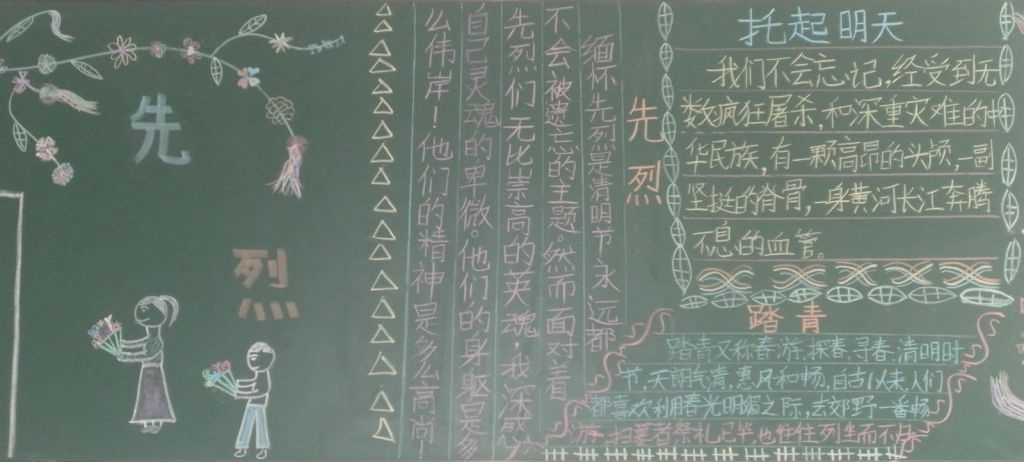 先
烈
先烈
缅怀先烈是清明节永远都
不会被遗忘的主题。然而面对着
先烈们无比崇高的英魂，我深感
自己灵魂的卑微。他们的身躯是多
么伟岸！他们的精神是多么高尚！
托起明天
我们不会忘记，经受到无
数疯狂屠杀，和深重灾难的中
华民族，有一颗高昂的头颅，一副
坚挺的脊骨，一身黄河长江奔腾
不息的血管。
踏青
踏青又称春游、探春、寻春。清明时
节，天朗气清，惠风和畅，自古以来，人们
都喜欢利用春光明媚之际，去郊野一番畅
游。扫墓者祭礼已毕，也往往列坐而不归